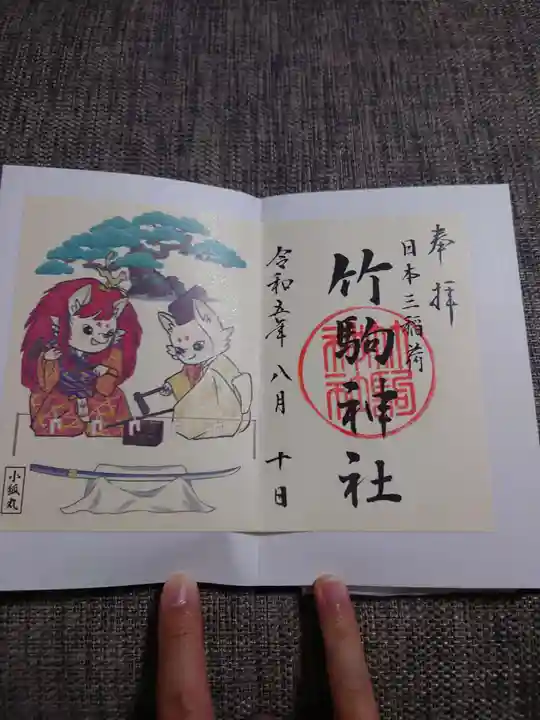 奉拝
日本三稲荷
竹駒神社
令和五年 八月 十日
小狐丸